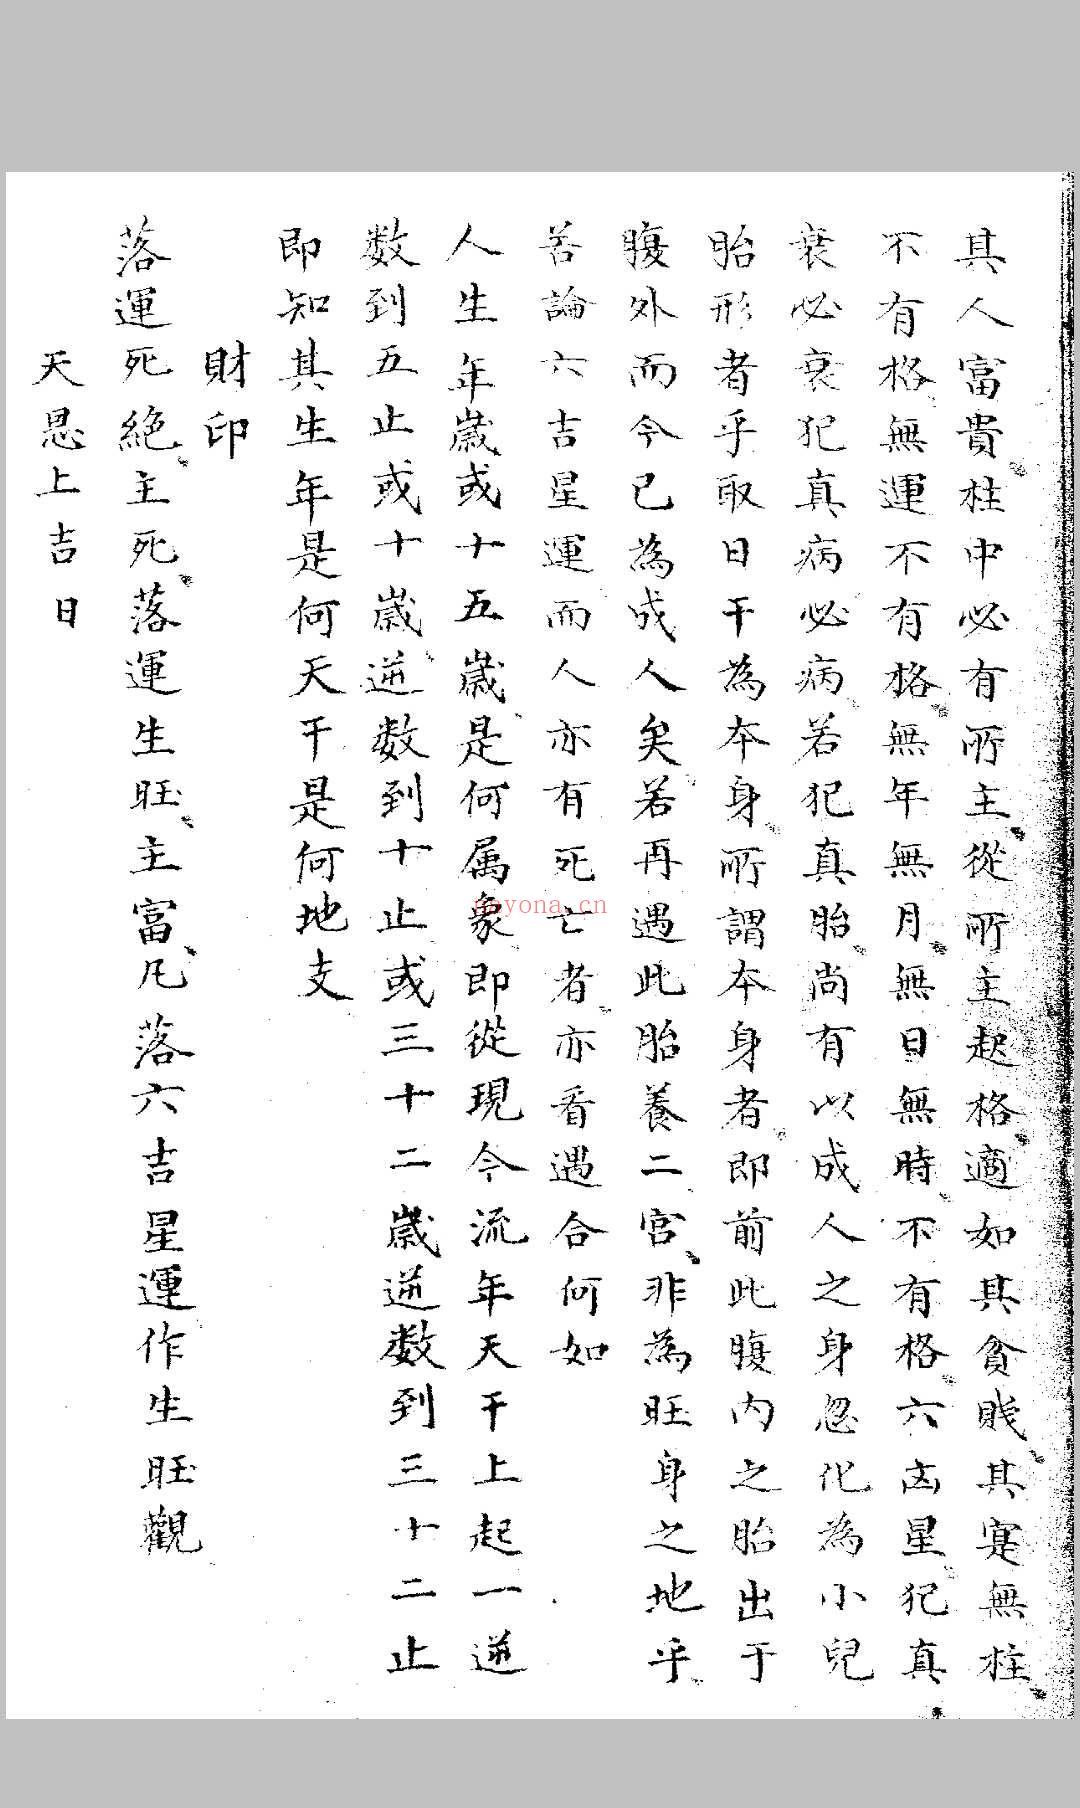 其人富貴柱中必有所主從所主起格適如其貧賤其寔無柱
不有格無運不有格無年無月無日無時不有格六凶星犯真
衰必衰犯真病必病若犯真胎尚有以成人之身忽化為小兒
胎形者乎取日干為本身所謂本身者即前此腹内之胎出于
腹外而今已為成人矣若再遇此胎養二宮非為旺身之地乎
若論六吉星運而人亦有死亡者亦看遇合何如
人生年歲或十五歲是何属象即從現今流年天干上起一逆
数到五止或十歲逆数到十止或三十二歲逆数到三十二止
即知其生年是何天干是何地支
財印
落運死絕主死落運生旺主富凡落六吉星運作生旺觀
天恩上吉日
nayona.cn